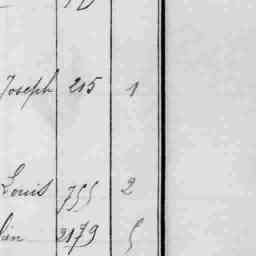 Joseph 215 1
Louis 755 2
lien 2179 5